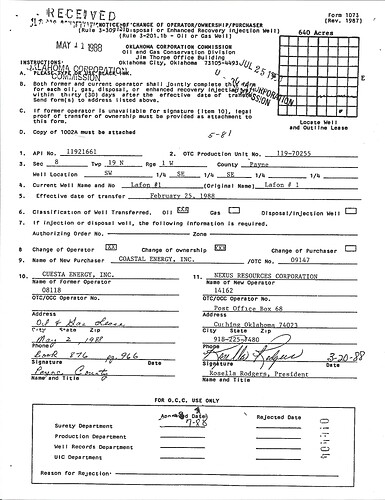 RECEIVED
NOTICE OF CHANGE OF OPERATOR/OWNERSHIP/PURCHASER
Form 1073
(Rev. 1987)
(Rule 3-309 Disposal or Enhanced Recovery Injection Well)
(Rule 3-201.1b - Oil or Gas Well)
640 Acres
MAY 11 1988
OKLAHOMA CORPORATION COMMISSION
Oil and Gas Conservation Division
Jim Thorpe Office Building
Oklahoma City, Oklahoma 73105-4493
JUL 25 19
INSTRUCTIONS
OKLAHOMA CORPORATION
COMMISSION
A. PLEASE TYPE OR USE BLACK INK.
B. Both former and current operator shall jointly complete this form
for each oil, gas, disposal, or enhanced recovery injection well
within thirty (30) days after the effective date of transfer.
Send form(s) to address listed above.
C. If former operator is unavailable for signature (Item 10), legal
proof of transfer of ownership must be provided as attachment to
this form.
Locate Well
and Outline Lease
D. Copy of 1002A must be attached
5-81
1. API No. 11921661 2. OTC Production Unit No. 119-70255
3. Sec 8 Twp 19 N Rge 1 W County Payne
Well Location SW 1/4 SE 1/4 SE 1/4 1/4
4. Current Well Name and No Lafon #1 (Original Name) Lafon # 1
5. Effective date of transfer February 25, 1988
6. Classification of Well Transferred. Oil XXX Gas Disposal/Injection Well
7. If injection or disposal well, the following information is required.
Authorizing Order No. Zone
8 Change of Operator XXX Change of ownership XXX Change of Purchaser
9. Name of New Purchaser COASTAL ENERGY, INC. /OTC No. 09147
10. CUESTA ENERGY, INC. 11. NEXUS RESOURCES CORPORATION
Name of Former Operator Name of New Operator
08118 14162
OTC/OCC Operator No. OTC/OCC Operator No.
Post Office Box 68
Address Address
Oil & Gas Lease Cushing Oklahoma 74023
City State Zip City State Zip
May 2, 1988 918-225-7480
Phone Phone
Book 876 pg. 966 Rosella Rodgers 3-20-88
Signature Date Signature Date
Payne County Rosella Rodgers, President
Name and Title Name and Title
FOR O.C.C. USE ONLY
Approved Date Rejected Date
Surety Department 7-88
Production Department
Well Records Department
UIC Department
Reason for Rejection